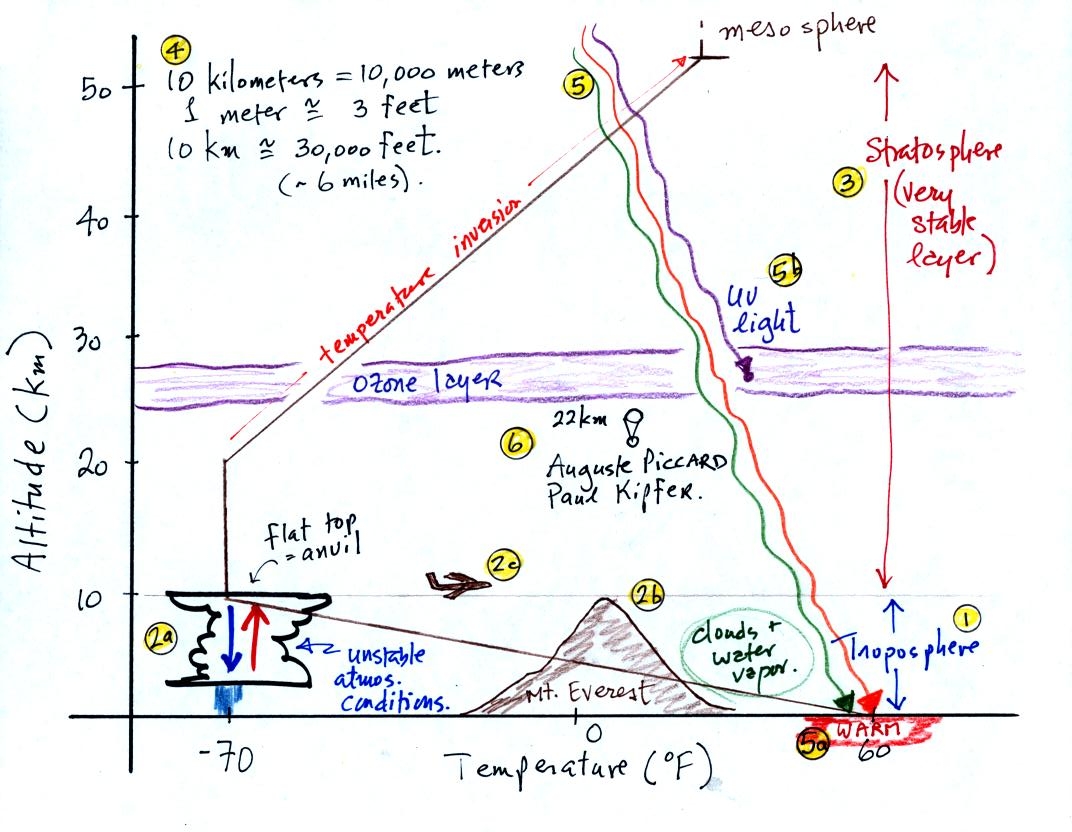 mesosphere
4
10 kilometers = 10,000 meters
1 meter ≅ 3 feet
10 km ≅ 30,000 feet.
(~ 6 miles).
5
Stratosphere
(very
stable
layer)
3
temperature inversion
5b
UV
light
Ozone layer
22km
6
Auguste PICCARD
Paul Kipfer.
flat top
= anvil
2c
2b
2a
unstable
atmos.
conditions.
Mt. Everest
clouds +
water
vapor.
1
Troposphere
WARM
5a
Altitude (km)
50
40
30
20
10
-70
0
60
Temperature (°F)